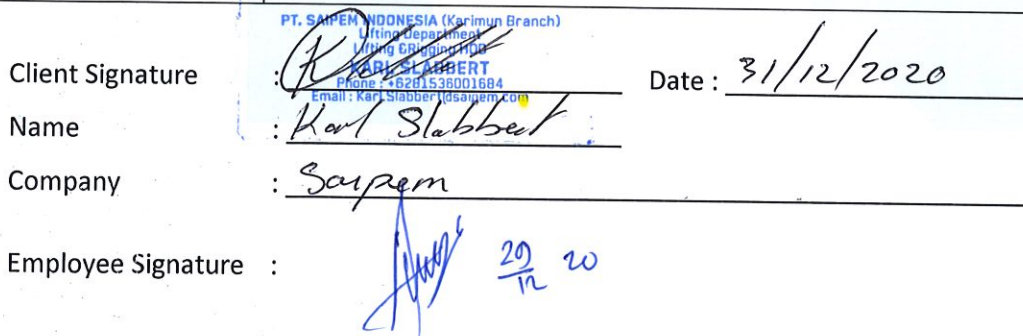 PT. SAIPEM INDONESIA (Karimun Branch)
Lifting Department
Lifting & Rigging HOD
KARL SLABBERT
Phone : +6281536001684
Email : Karl.Slabbert@saipem.com
Client Signature : Date : 31/12/2020
Name : Karl Slabbert
Company : Saipem
Employee Signature : 29/12 20